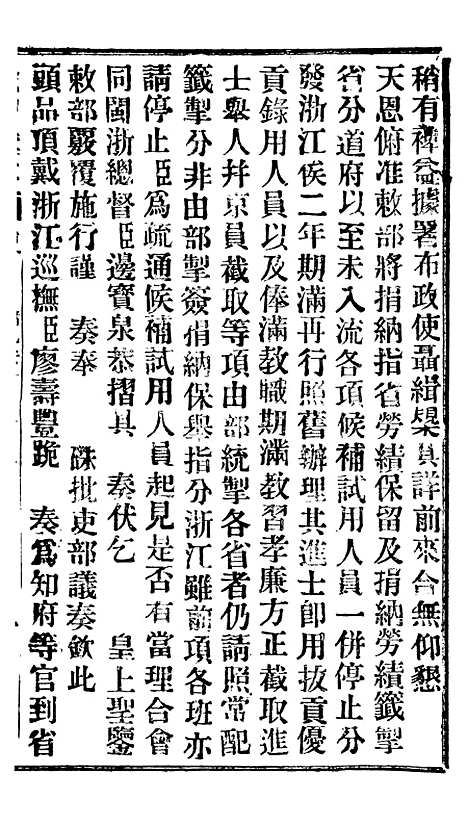 稍有裨益據署布政使聶緝槼具詳前來合無仰懇
天恩俯准敕部將捐納指省勞績保留及捐納勞績籤掣
省分道府以至未入流各項候補試用人員一併停止分
發浙江俟二年期滿再行照舊辦理其進士卽用拔貢優
貢錄用人員以及俸滿教職期滿教習孝廉方正截取進
士舉人幷京員截取等項由部統掣各省者仍請照常配
籤掣分非由部掣簽捐納保舉指分浙江雖前項各班亦
請停止臣爲疏通候補試用人員起見是否有當理合會
同閩浙總督臣邊寶泉恭摺具 奏伏乞 皇上聖鑒
敕部覈覆施行謹 奏奉 硃批吏部議奏欽此
頭品頂戴浙江巡撫臣廖壽豐跪 奏爲知府等官到省